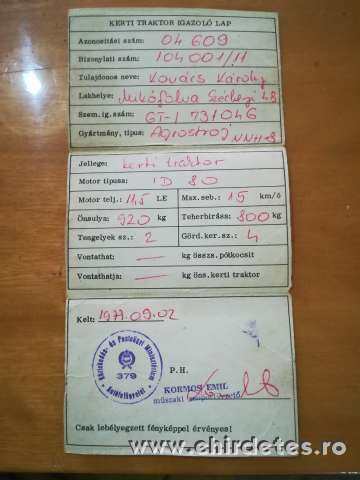 KERTI TRAKTOR IGAZOLÓ LAP
Azonosítási szám: 04 609
Bizonylati szám: 104 001/11
Tulajdonos neve: Kovács Károly
Lakhelye: Mikófalva Széchenyi 48
Szem. ig. szám: GT-I 731046
Gyártmány, típus: Agrostroj
Jellege: kerti traktor
Motor típusa: 1D 80
Motor telj.: 11,5 LE Max. seb.: 15 km/ó
Önsulya: 920 kg Teherbírása: 800 kg
Tengelyek sz.: 2 Görd. ker. sz.: 4
Vontathat: — kg összs. pótkocsit
Vontathatja: — kg öns. kerti traktor
Kelt: 1977.09.02
Közlekedés- és Postaügyi Minisztérium
379
P.H.
KORMOS EMIL
műszaki
Csak lebélyegzett fényképpel érvényes!
www.ehirdetes.ro